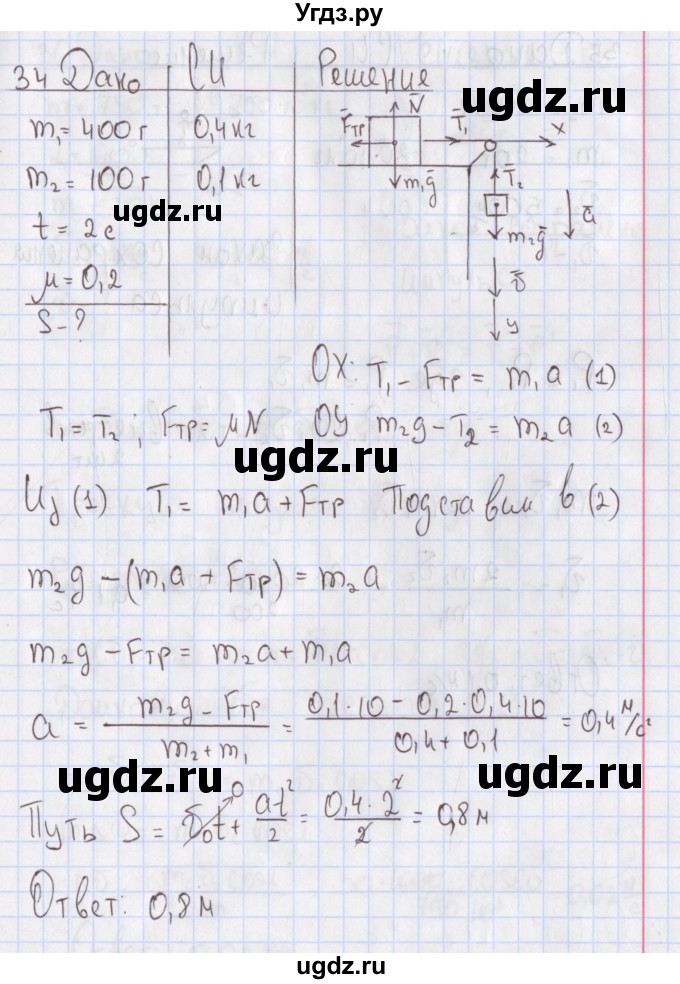 Угдз.ру
34 Дано СИ Решение
ugdz.ru
N̄
F̄тр T̄₁ x
m₁ = 400 г 0,4 кг
m₁ḡ T̄₂
m₂ = 100 г 0,1 кг
ā
ugdz.ru
m₂ḡ
t = 2 с
ῡ
μ = 0,2
S - ?
y
OX: T₁ - Fтр = m₁a (1)
T₁ = T₂ ; Fтр = μN OY m₂g - T₂ = m₂a (2)
ugdz.ru
Из (1) T₁ = m₁a + Fтр Подставим в (2)
m₂g - (m₁a + Fтр) = m₂a
m₂g - Fтр = m₂a + m₁a
a = (m₂g - Fтр)/(m₂ + m₁) = (0,1·10 - 0,2·0,4·10)/(0,4 + 0,1) = 0,4 м/с²
ugdz.ru ugdz.ru
Путь S = υ₀t + at²/2 = 0,4·2²/2 = 0,8 м
0
Ответ: 0,8 м
ugdz.ru
ugdz.ru